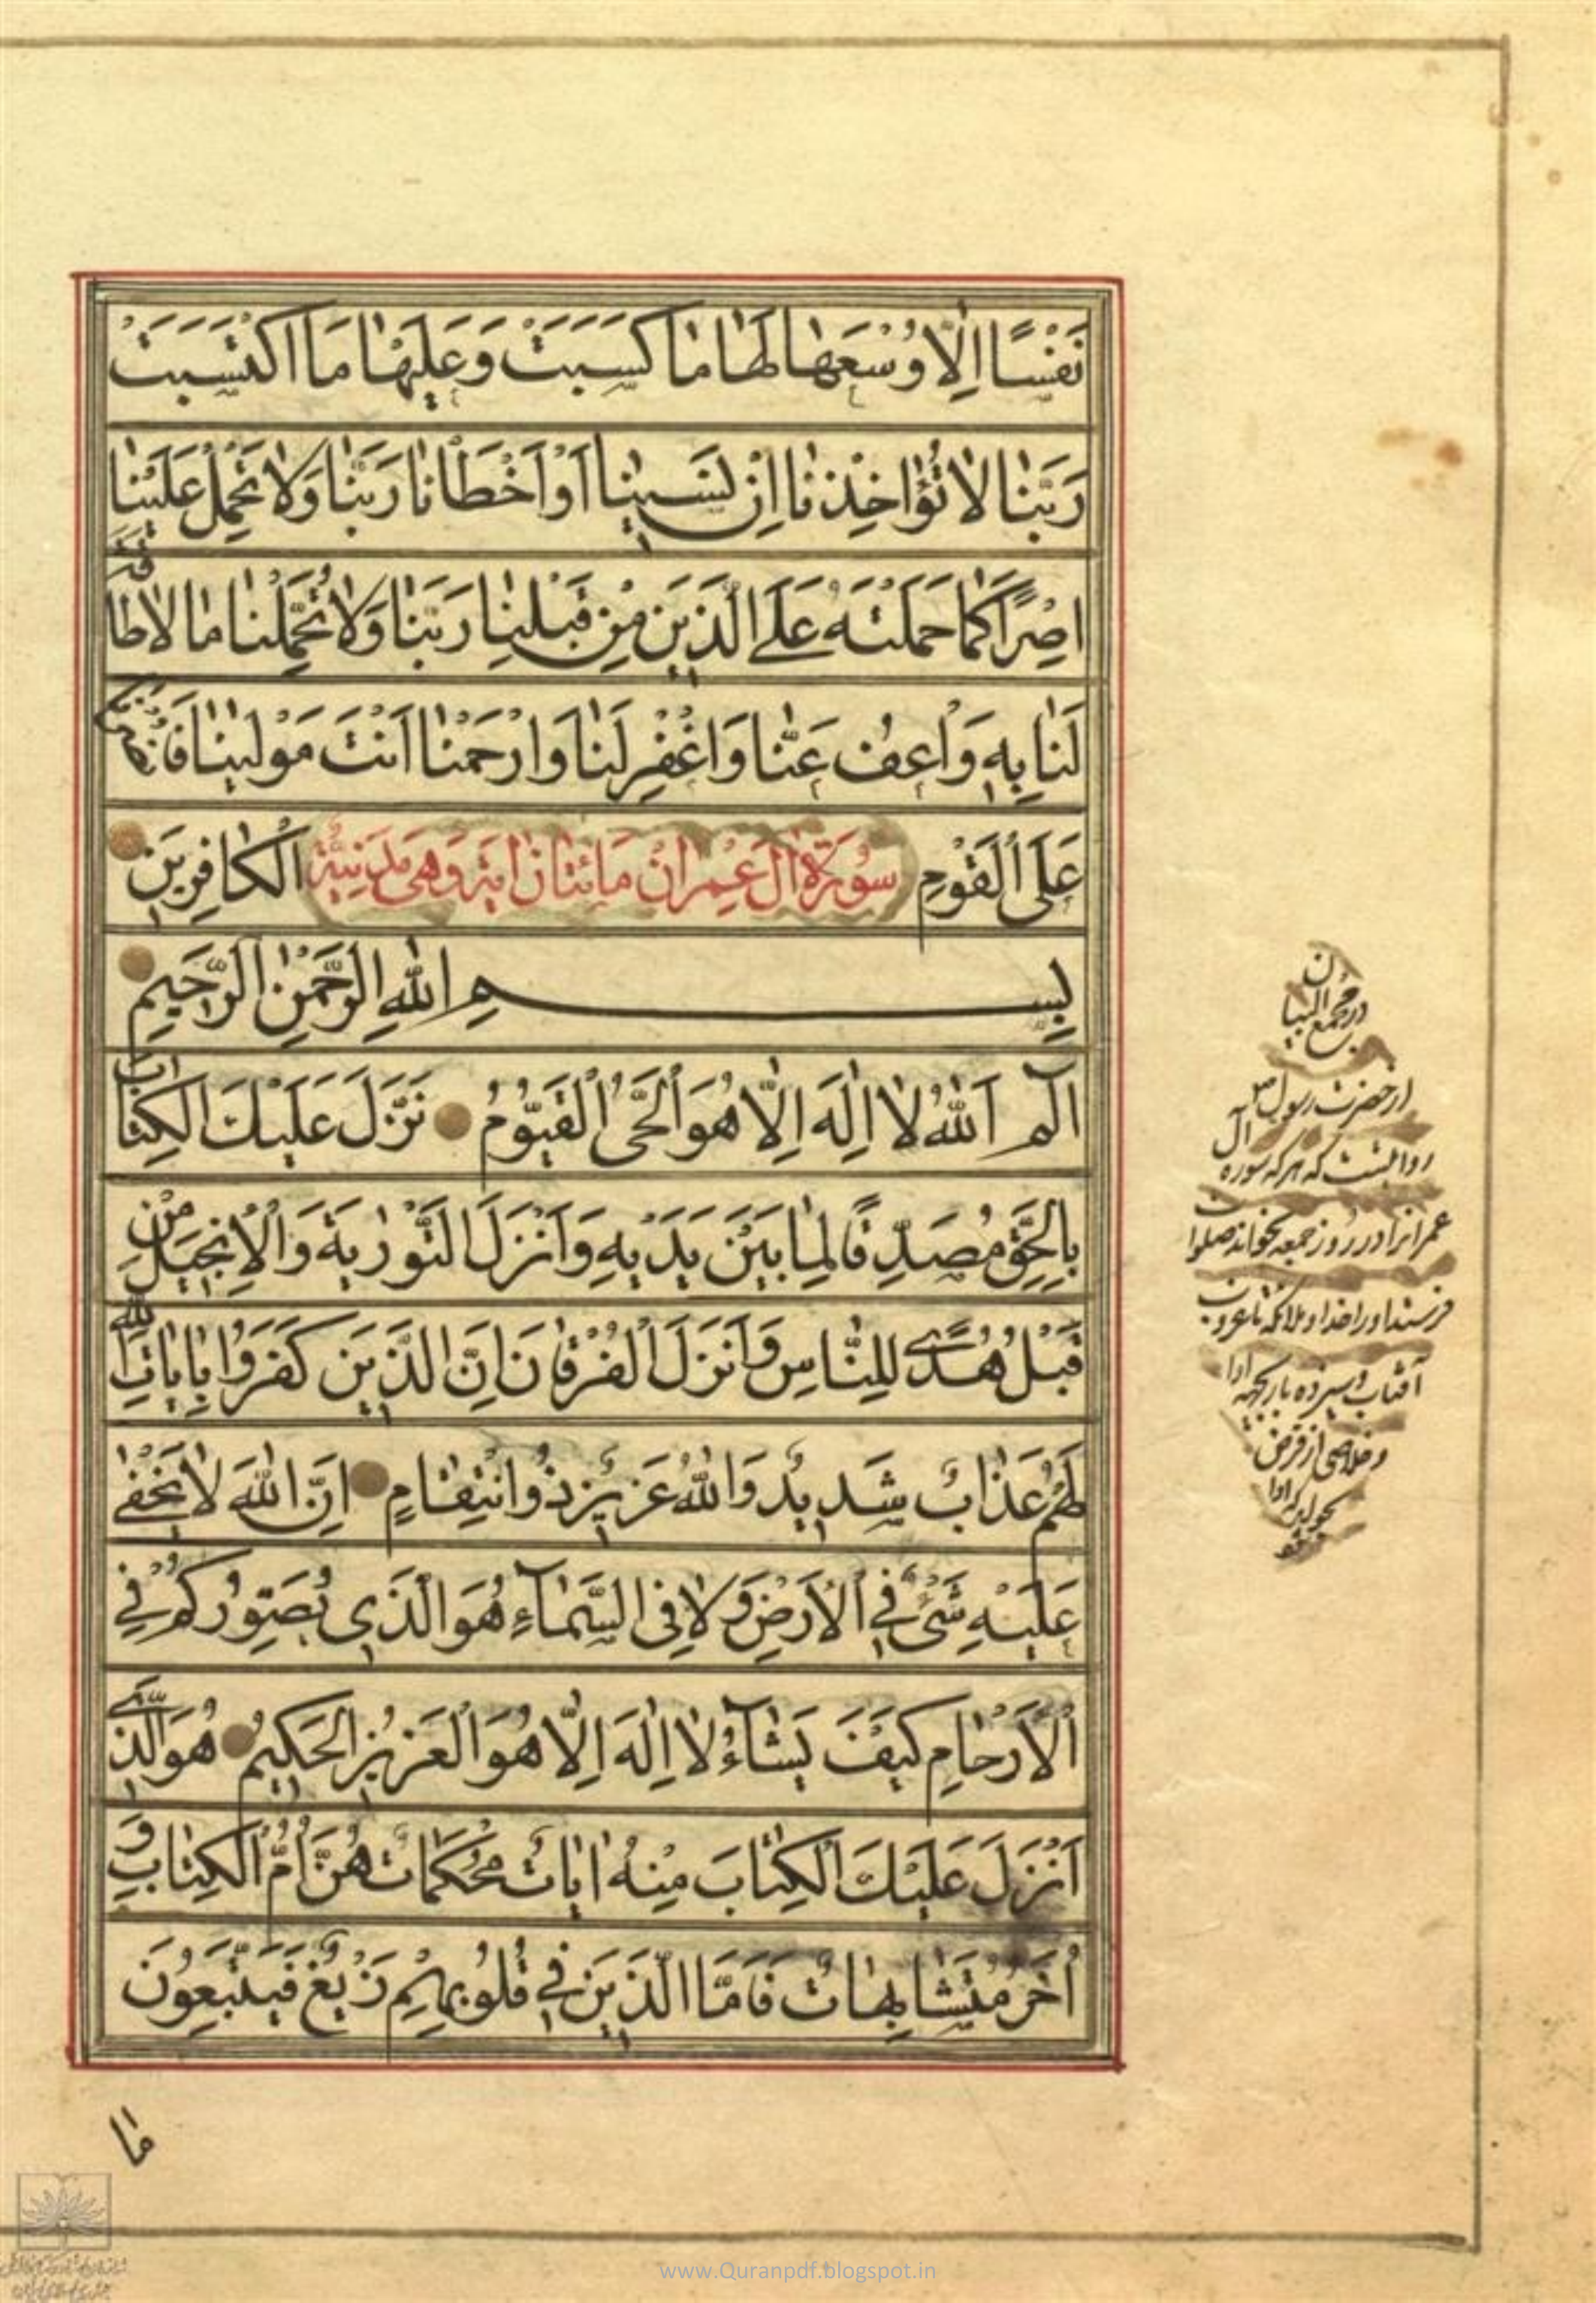 نَفْسًا اِلّا وُسْعَها لَها ما كَسَبَتْ وَعَلَيْها مَا اكْتَسَبَتْ
رَبَّنا لا تُؤاخِذْنا اِنْ نَسينا اَوْ اَخْطَأْنا رَبَّنا وَلا تَحْمِلْ عَلَيْنا
اِصْرًا كَما حَمَلْتَهُ عَلَى الَّذينَ مِنْ قَبْلِنا رَبَّنا وَلا تُحَمِّلْنا ما لا طاقَةَ
لَنا بِهِ وَاعْفُ عَنّا وَاغْفِرْ لَنا وَارْحَمْنا اَنْتَ مَوْلينا فَانْصُرْنا
عَلَى الْقَوْمِ الْكافِرينَ
سُورَةُ الِ عِمْرانَ مائتان ايَة وَهِىَ مَدَنِيَّة
بِسْمِ اللهِ الرَّحْمنِ الرَّحيمِ
الٓمٓ اَللهُ لا اِلهَ اِلّا هُوَ الْحَىُّ الْقَيُّومُ نَزَّلَ عَلَيْكَ الْكِتابَ
بِالْحَقِّ مُصَدِّقًا لِما بَيْنَ يَدَيْهِ وَاَنْزَلَ التَّوْريةَ وَالْاِنْجيلَ مِنْ
قَبْلُ هُدًى لِلنّاسِ وَاَنْزَلَ الْفُرْقانَ اِنَّ الَّذينَ كَفَرُوا بِاياتِ اللهِ
لَهُمْ عَذابٌ شَديدٌ وَاللهُ عَزيزٌ ذُو انْتِقامٍ اِنَّ اللهَ لا يَخْفى
عَلَيْهِ شَىْءٌ فِى الْاَرْضِ وَلا فِى السَّمآءِ هُوَ الَّذى يُصَوِّرُكُمْ فِى
الْاَرْحامِ كَيْفَ يَشآءُ لا اِلهَ اِلّا هُوَ الْعَزيزُ الْحَكيمُ هُوَ الَّذى
اَنْزَلَ عَلَيْكَ الْكِتابَ مِنْهُ اياتٌ مُحْكَماتٌ هُنَّ اُمُّ الْكِتابِ وَ
اُخَرُ مُتَشابِهاتٌ فَاَمَّا الَّذينَ فى قُلُوبِهِمْ زَيْغٌ فَيَتَّبِعُونَ
ما
در مجمع البيان
از حضرت رسول ص
روايتست كه هر كه سوره آل
عمرانرا در روز جمعه بخواند صلوات
فرستد او را خدا و ملائكه تا غروب
آفتاب و
و خلاصى از قرض
www.Quranpdf.blogspot.in